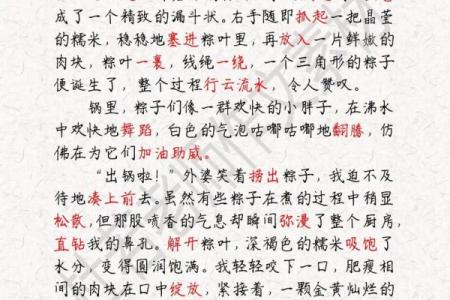 成了一个精致的漏斗状。右手随即抓起一把晶莹
的糯米，稳稳地塞进粽叶里，再放入一片鲜嫩的
肉块，粽叶一裹，线绳一绕，一个三角形的粽子
便诞生了，整个过程行云流水，令人赞叹。
锅里，粽子们像一群欢快的小胖子，在沸水
中欢快地舞蹈，白色的气泡咕嘟咕嘟地翻腾，仿
佛在为它们加油助威。
“出锅啦！”外婆笑着捞出粽子，我迫不及
待地凑上前去。虽然有些粽子在煮的过程中稍显
松散，但那股喷香的气息却瞬间弥漫了整个厨房，
直钻我的鼻孔。解开粽叶，深褐色的糯米吸饱了
水分，变得圆润饱满。我轻轻咬下一口，肥瘦相
间的肉块在口中绽放，紧接着，一颗金黄灿烂的